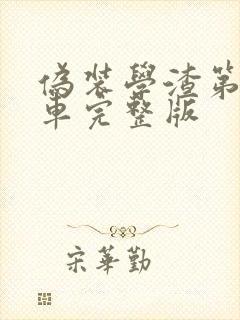 偽裝學渣第
車完整版
宋華勤